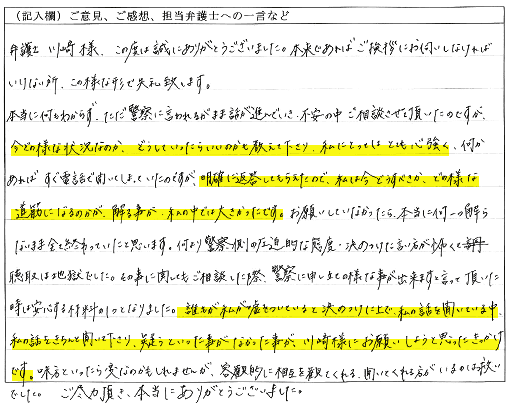 （記入欄）ご意見、ご感想、担当弁護士への一言など
弁護士 川崎様、この度は誠にありがとうございました。本来であればご挨拶にお伺いしなければ
いけない所、この様な形で失礼致します。
本当に何もわからず、ただ警察に言われるがまま話が進んでいき、不安の中ご相談させて頂いたのですが、
今どの様な状況なのか、どうしていったらいいのかを教えて下さり、私にとってはとても心強く、何か
あればすぐ電話で聞いてしまっていたのですが、明確に返答してもらえたので、私は今どうすべきか、どの様な
道筋になるのかが、解る事が私の中では大きかったです。お願いしていなかったら、本当に何一つ解ら
ないまま全て終わっていたと思います。何より警察側の圧迫的な態度・決めつけた言い方が怖くて
聴取は地獄でした。その事に関してもご相談した際、警察に申し立ての様な事が出来ますと言って頂いた
時は安心する材料の1つとなりました。誰もが私が嘘をついていると決めつけた上で、私の話を聞いている中、
私の話をきちんと聞いて下さり、疑うといった事がなかった事が、川崎様にお願いしようと思ったきっかけ
です。味方といったら変なのかもしれませんが、客観的に相互を観てくれる、聞いてくれる方がいるのは救い
でした。 ご尽力頂き、本当にありがとうございました。